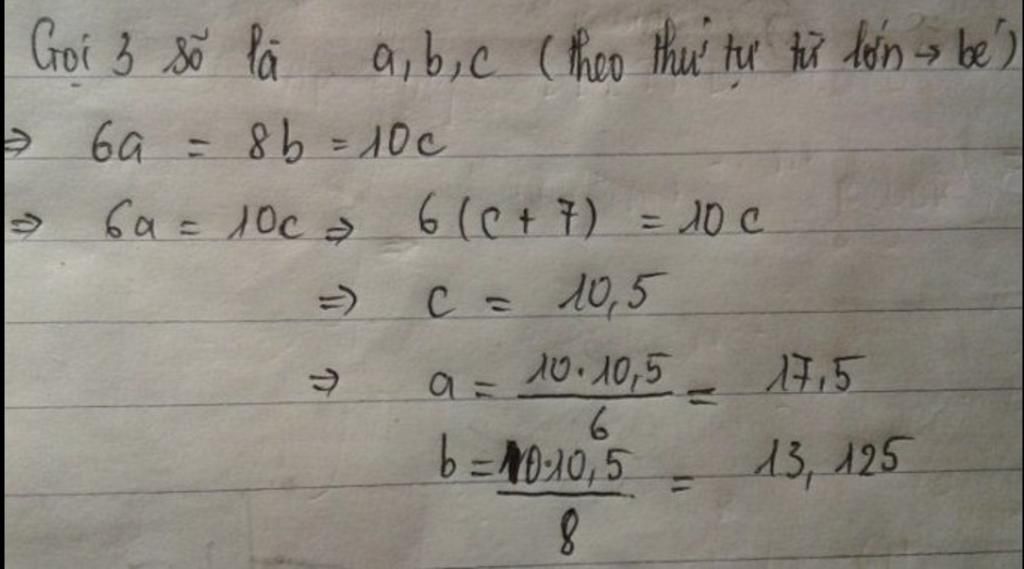 Gọi 3 số là a, b, c (theo thứ tự từ lớn → bé)
⇒ 6a = 8b = 10c
⇒ 6a = 10c ⇒ 6(c + 7) = 10c
⇒ c = 10,5
⇒ a = \frac{10·10,5}{6} = 17,5
b = \frac{10·10,5}{8} = 13,125